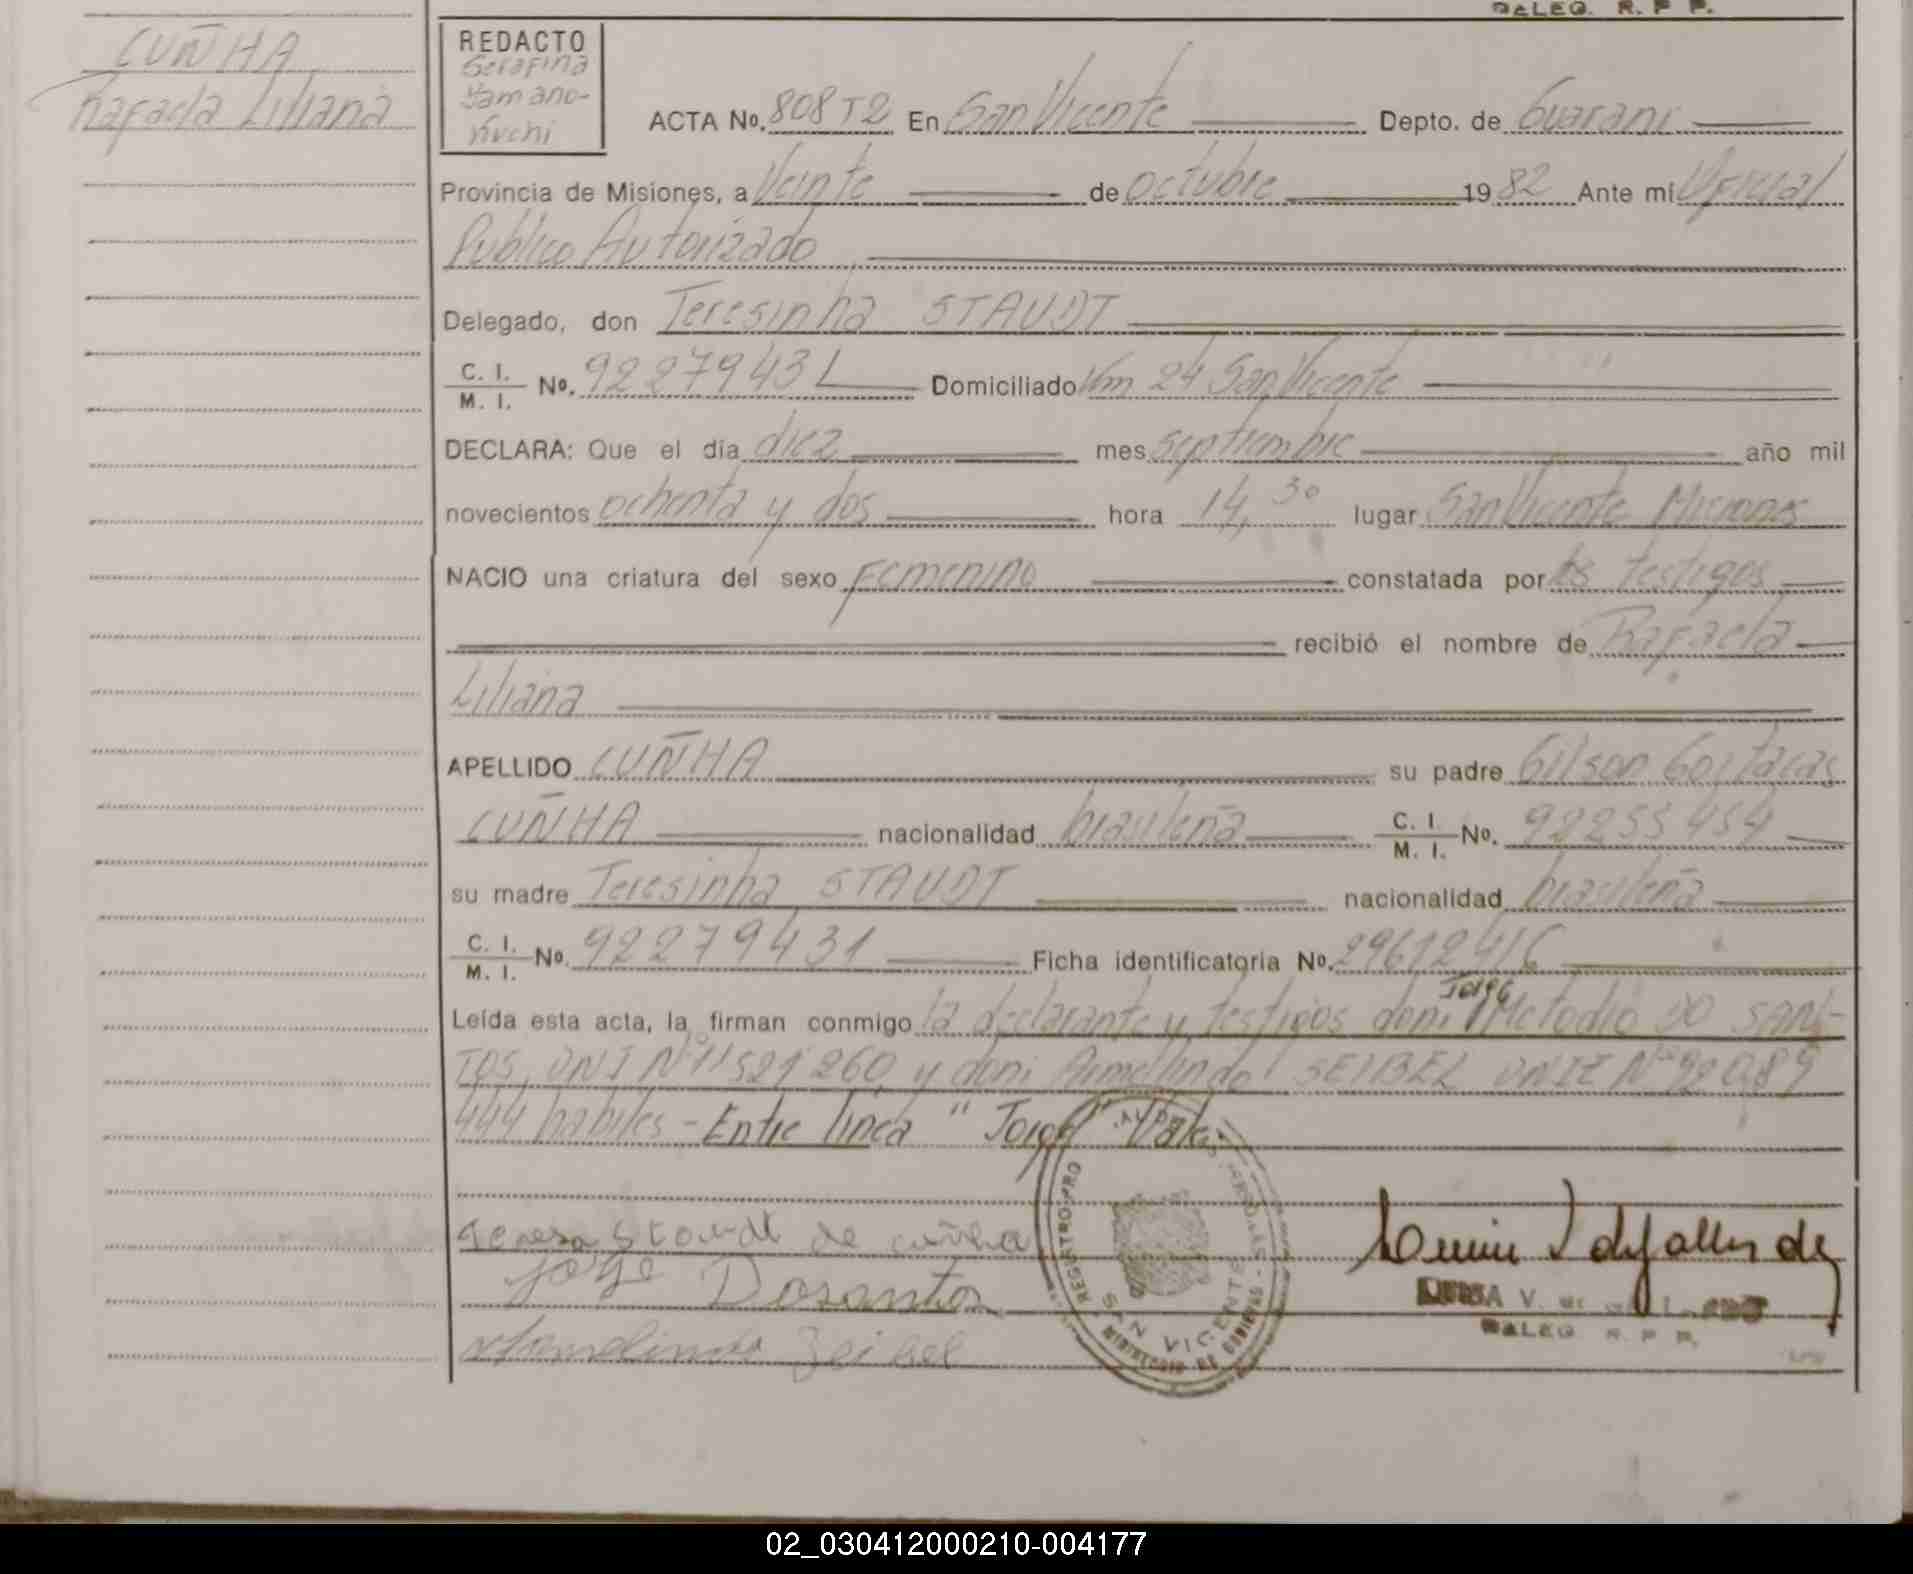 DALEG. R. P P.
CUÑHA
Rafaela Liliana
REDACTO
Serafina
Yamano-
Kuchi
ACTA No. 808 T2 En San Vicente Depto. de Guarani
Provincia de Misiones, a Veinte de octubre 1982 Ante mí Oficial
Publico Autorizado
Delegado, don Teresinha STAUDT
C. I. M. I. No. 92279431 Domiciliado Km 24 San Vicente
DECLARA: Que el día diez mes septiembre año mil
novecientos ochenta y dos hora 14,30 lugar San Vicente Misiones
NACIO una criatura del sexo femenino constatada por ts testigos
recibió el nombre de Rafaela
Liliana
APELLIDO CUÑHA su padre Gilson Goitacas
CUÑHA nacionalidad brasileña C. I. M. I. No. 92255454
su madre Teresinha STAUDT nacionalidad brasileña
C. I. M. I. No. 92279431 Ficha identificatoria No. 29612416
Jorge
Leída esta acta, la firman conmigo la declarante y testigos doni Metodio DO SAN-
TOS, DNI Nº 11521260 y doni Armelindo SEIBEL DNIE Nº 92089
444 habiles - Entre linea "Jorge" Vale
Teresa Staudt de cuñha
Jorge Dosantos
Armelindo Zeibel
REGISTRO PRO
SAN VICENTE
MINISTERIO DE GOBIERNO
LUISA V.
DALEG R. P P.
02_030412000210-004177